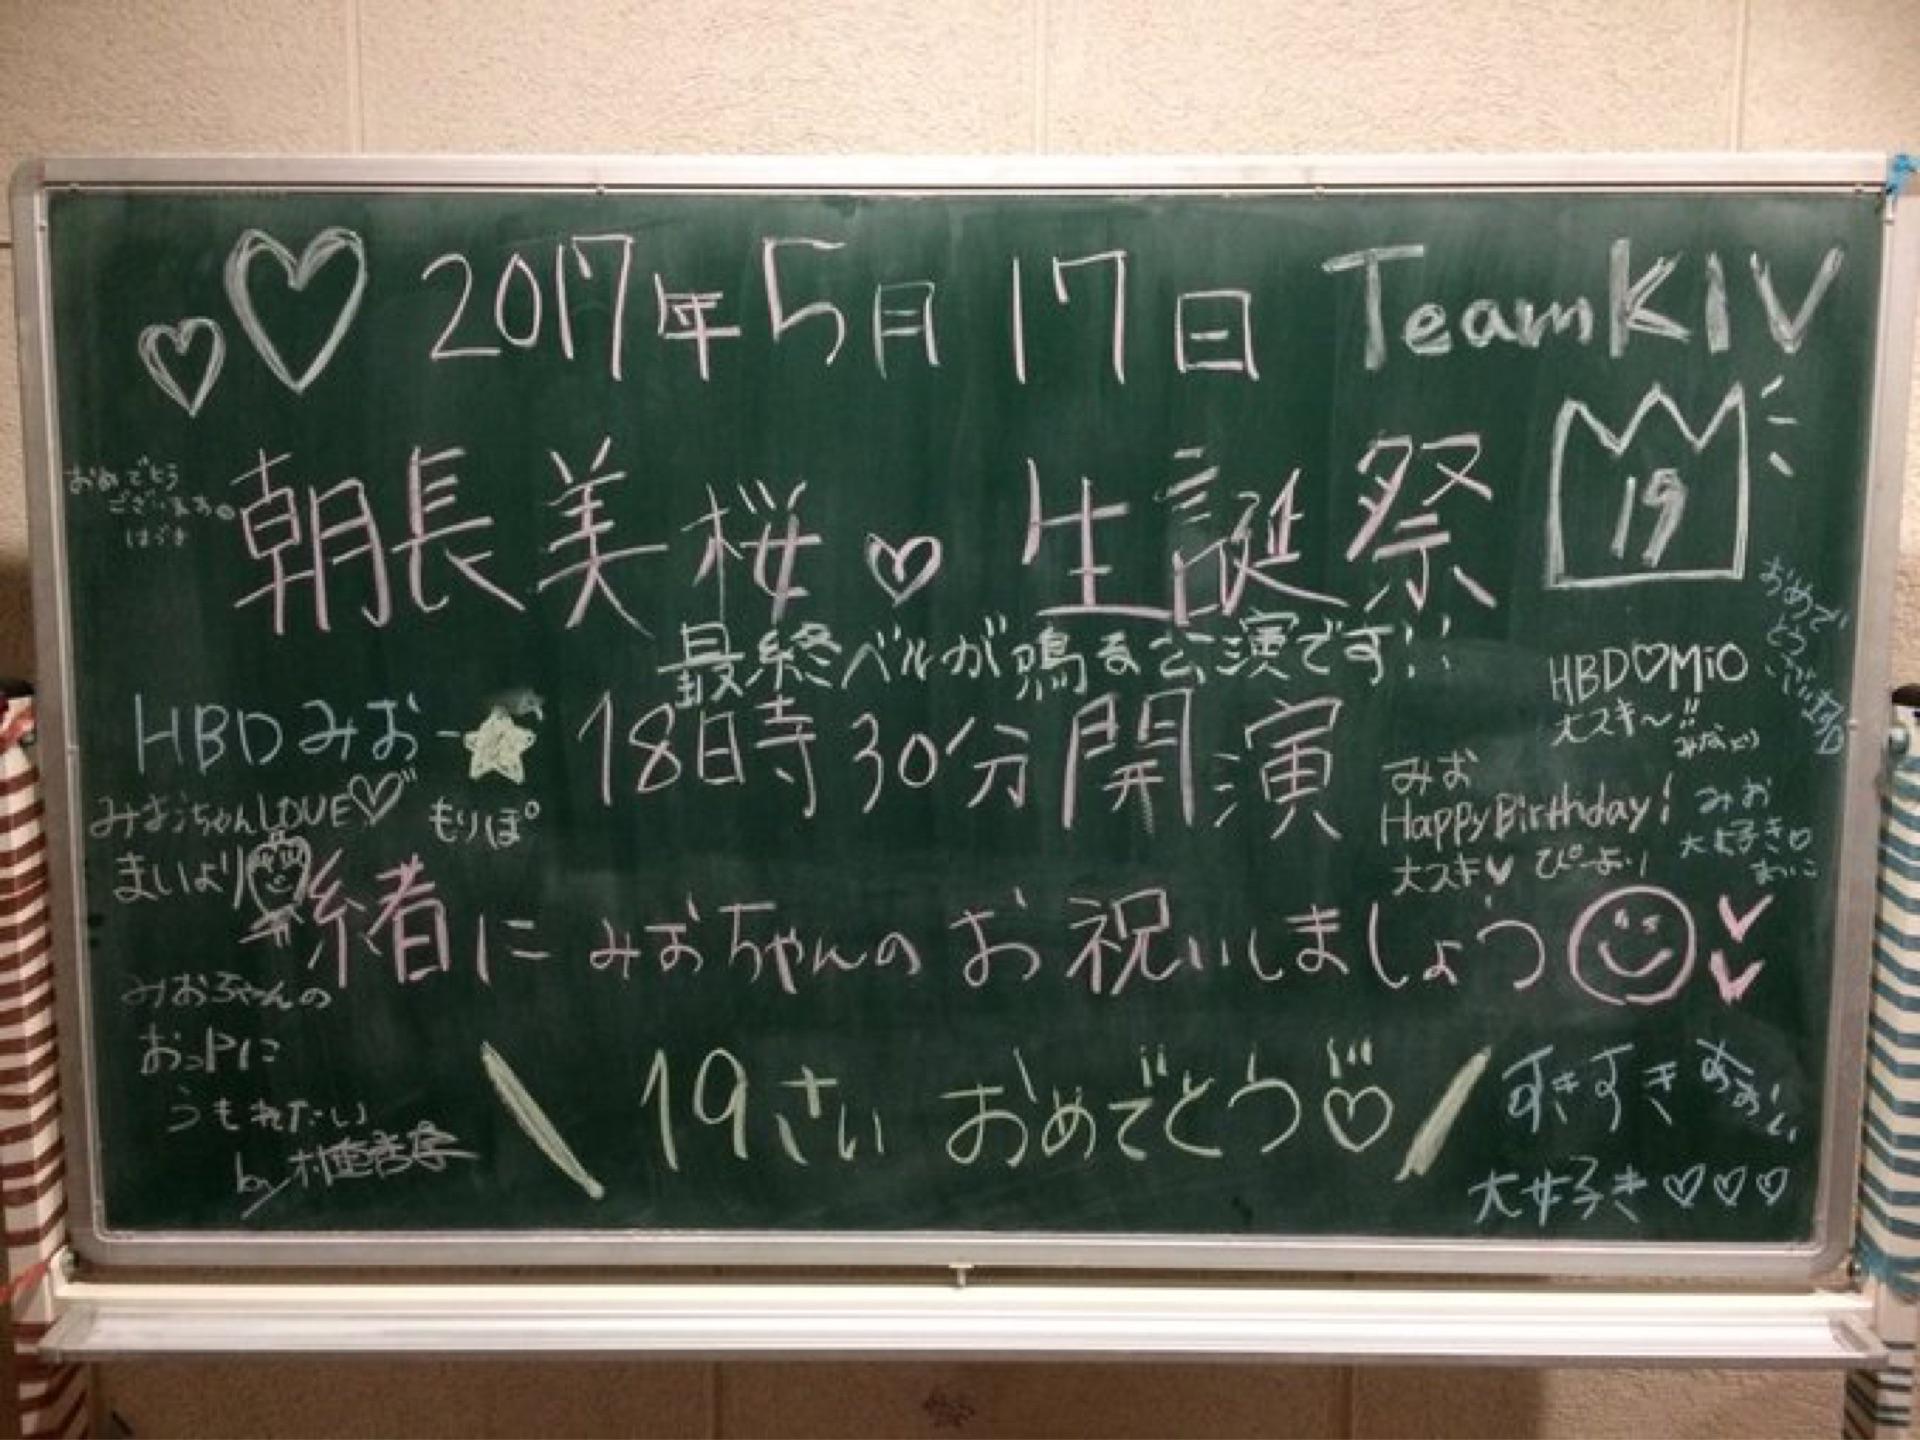 2017年5月17日 TeamKIV
朝長美桜♡生誕祭
19
おめでとう
ございます。
はづき
最終ベルが鳴る公演です!!
18時30分開演
HBDみおー
もりぽ
みおちゃんLOVE♡
まいより
HBD♡Mio
大スキ〜!!
みなぞう
おめで
とう
ござい
ます
みお
Happy Birthday!
大スキ♥ ぴーより
みお
大好き♡
まいこ
緒にみおちゃんのお祝いしましょう
みおちゃんの
おっPに
うもれたい
by
\ 19さい おめでとう♡ /
すきすき
大好き♡♡♡